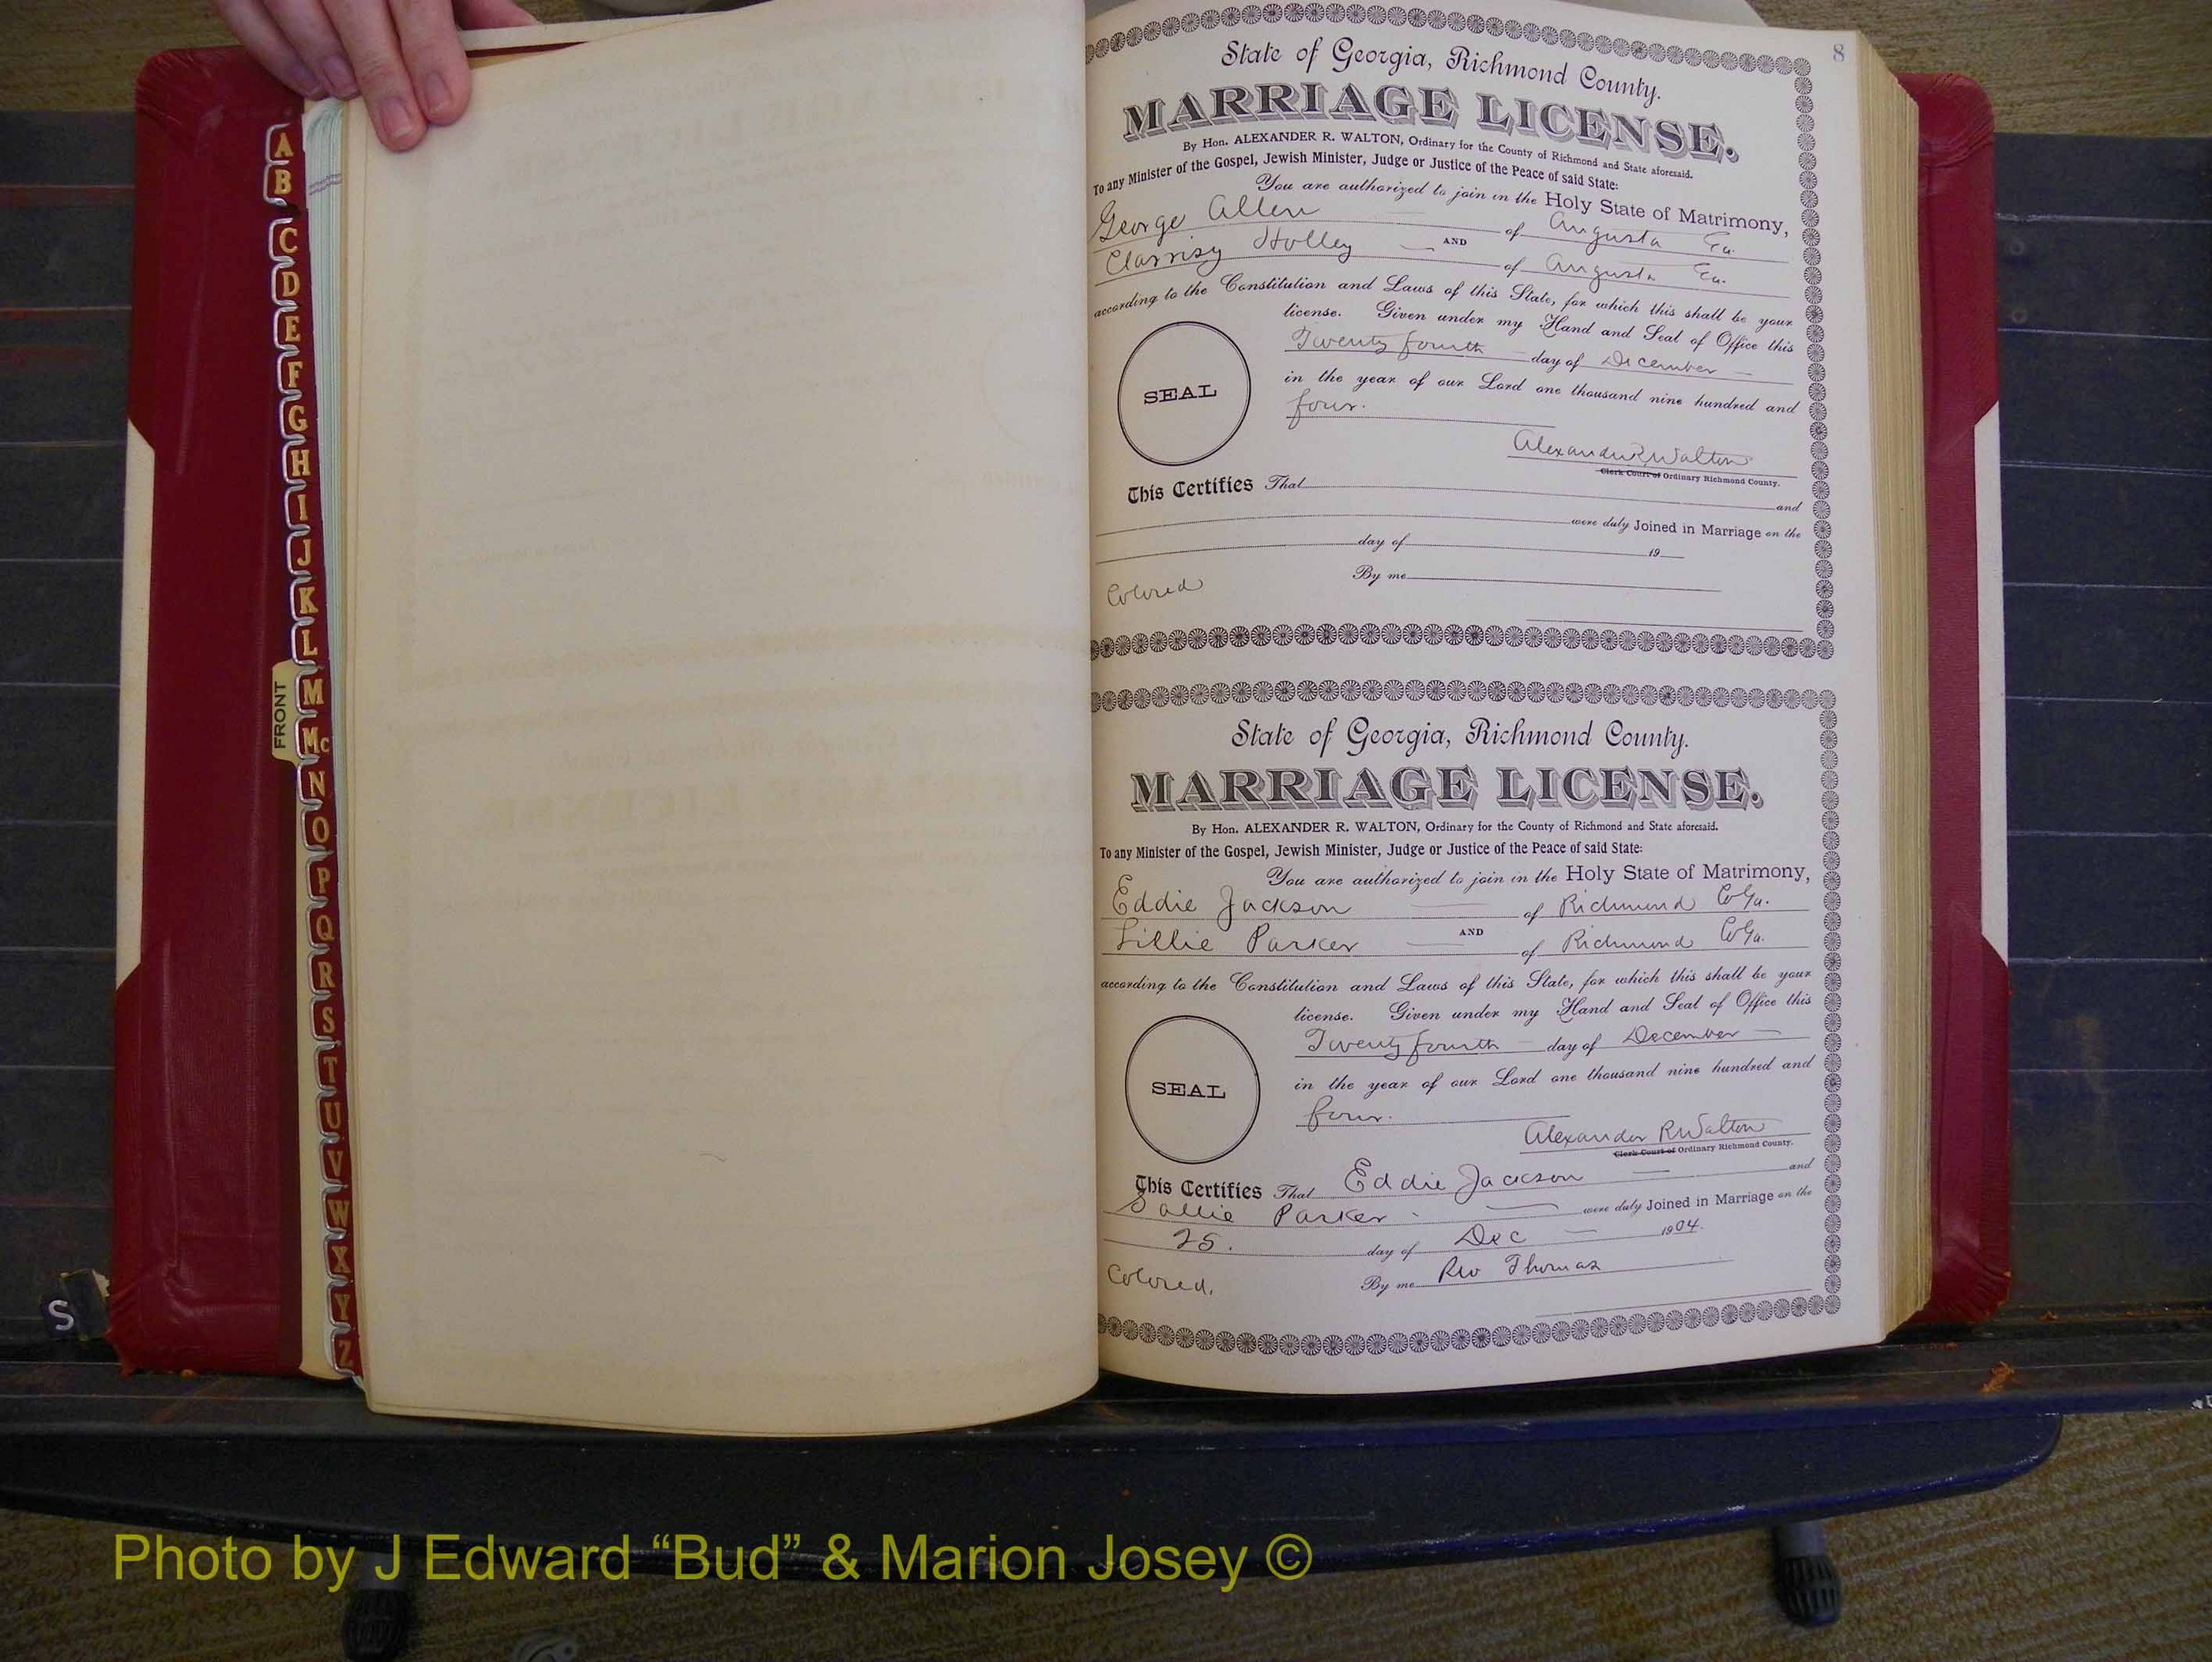 A
B
C
D
E
F
G
H
I
J
K
L
M
Mc
N
O
P
Q
R
S
T
U
V
W
X
Y
Z
FRONT
S
8
State of Georgia, Richmond County.
MARRIAGE LICENSE.
By Hon. ALEXANDER R. WALTON, Ordinary for the County of Richmond and State aforesaid.
To any Minister of the Gospel, Jewish Minister, Judge or Justice of the Peace of said State:
You are authorized to join in the Holy State of Matrimony,
George Allen of Augusta Ga.
AND
Clarrisy Holley of Augusta Ga.
according to the Constitution and Laws of this State, for which this shall be your
license. Given under my Hand and Seal of Office this
Twenty fourth day of December
in the year of our Lord one thousand nine hundred and
four.
SEAL
Alexander R Walton
Clerk Court of Ordinary Richmond County.
This Certifies That and
were duly Joined in Marriage on the
day of 19
Colored By me
State of Georgia, Richmond County.
MARRIAGE LICENSE.
By Hon. ALEXANDER R. WALTON, Ordinary for the County of Richmond and State aforesaid.
To any Minister of the Gospel, Jewish Minister, Judge or Justice of the Peace of said State:
You are authorized to join in the Holy State of Matrimony,
Eddie Jackson of Richmond Co Ga.
AND
Lillie Parker of Richmond Co Ga.
according to the Constitution and Laws of this State, for which this shall be your
license. Given under my Hand and Seal of Office this
Twenty fourth day of December
in the year of our Lord one thousand nine hundred and
four.
SEAL
Alexander R Walton
Clerk Court of Ordinary Richmond County.
This Certifies That Eddie Jackson and
Sallie Parker were duly Joined in Marriage on the
25. day of Dec 1904.
Colored. By me Rev Thomas
Photo by J Edward “Bud” & Marion Josey ©